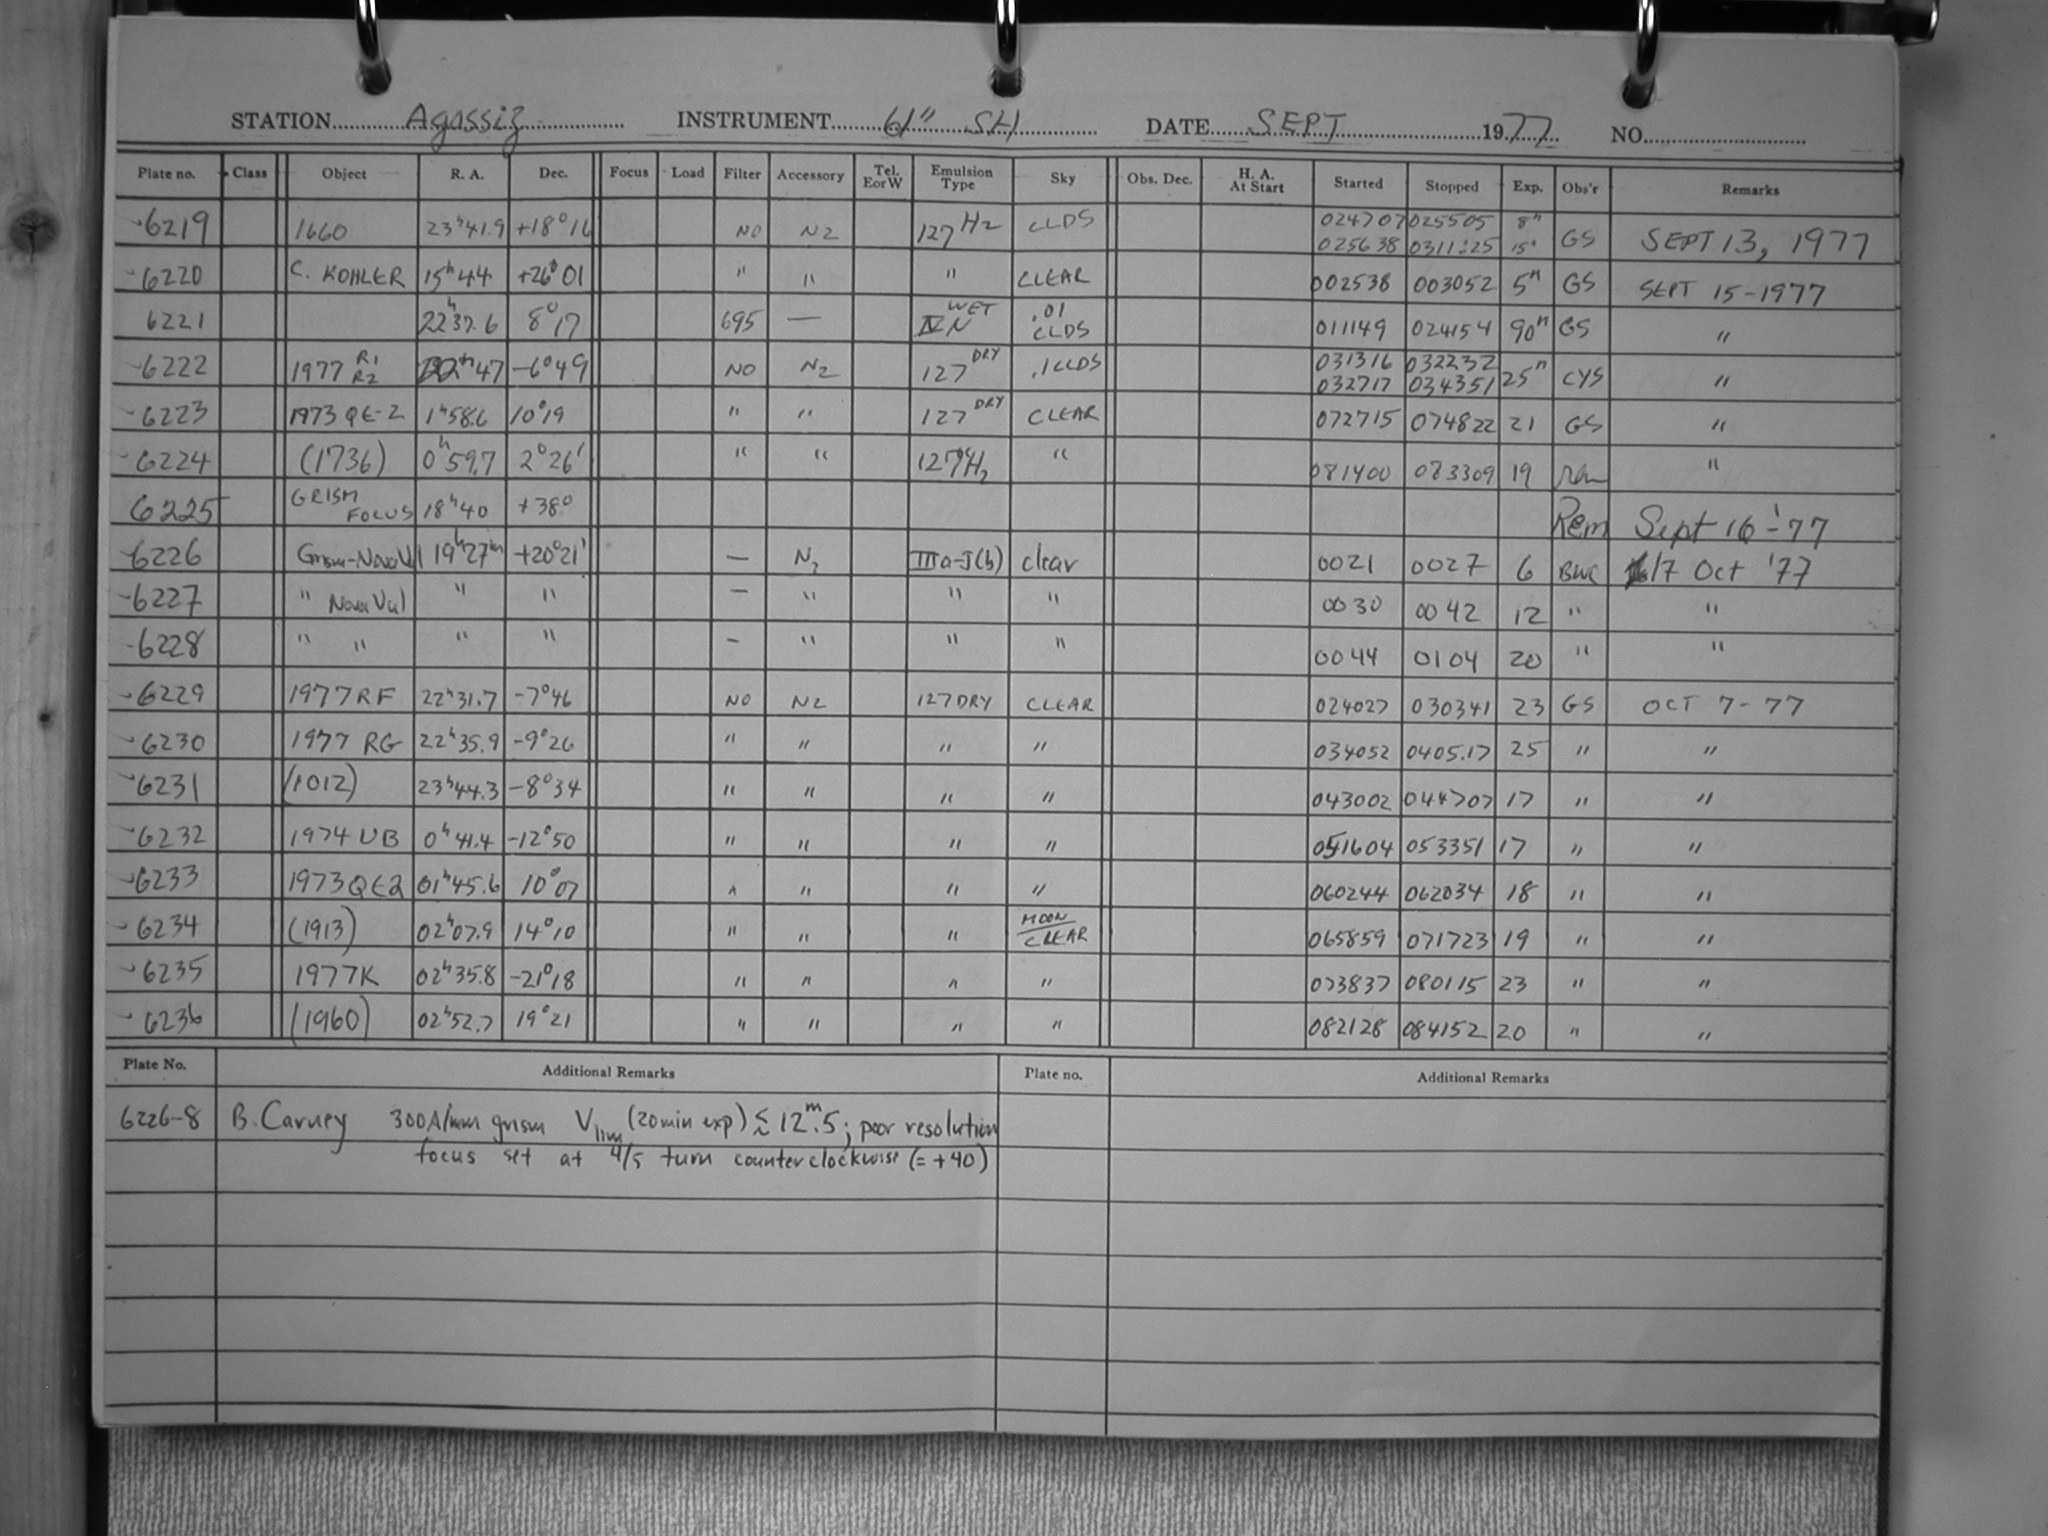 STATION Agassiz INSTRUMENT 61" SH DATE SEPT 1977 NO.
Plate no. Class Object R. A. Dec. Focus Load Filter Accessory Tel. E or W Emulsion Type Sky Obs. Dec. H. A. At Start Started Stopped Exp. Obs'r Remarks
6219 1660 23h41.9 +18°16 NO N2 127 H2 CLDS 024707 025505 8m GS SEPT 13, 1977
025638 0311:25 15s
6220 C. KOHLER 15h44 +26°01 " " " CLEAR 002538 003052 5m GS SEPT 15-1977
6221 22h37.6 8°17 695 — IV N WET .01 CLDS 011149 024154 90m GS "
6222 1977 R1 R2 22h47 -6°49 NO N2 127 DRY .1 CLDS 031316 032232 25m CYS "
032717 034351
6223 1973 QE-2 1h58.6 10°19 " " 127 DRY CLEAR 072715 074822 21 GS "
6224 (1736) 0h59.7 2°26' " " 127 H2 " 081400 083309 19 "
6225 GRISM FOCUS 18h40 +38° Rem Sept 16-'77
6226 Grism-NovaVul 19h27m +20°21' — N2 IIIa-J(b) clear 0021 0027 6 BWC 6/7 Oct '77
6227 " NovaVul " " — " " " 0030 0042 12 " "
6228 " " " " – " " " 0044 0104 20 " "
6229 1977 RF 22h31.7 -7°46 NO N2 127 DRY CLEAR 024027 030341 23 GS OCT 7-77
6230 1977 RG 22h35.9 -9°26 " " " " 034052 0405.17 25 " "
6231 (1012) 23h44.3 -8°34 " " " " 043002 044707 17 " "
6232 1974 UB 0h41.4 -12°50 " " " " 051604 053351 17 " "
6233 1973QE2 01h45.6 10°07 " " " " 060244 062034 18 " "
6234 (1913) 02h07.9 14°10 " " " MOON/CLEAR 065859 071723 19 " "
6235 1977K 02h35.8 -21°18 " " " " 073837 080115 23 " "
6236 (1960) 02h52.7 19°21 " " " " 082128 084152 20 " "
Plate No. Additional Remarks Plate no. Additional Remarks
6226-8 B. Carney 300A/mm grism Vlim (20min exp) ≲ 12m.5; poor resolution
focus set at 4/5 turn counterclockwise (= +40)